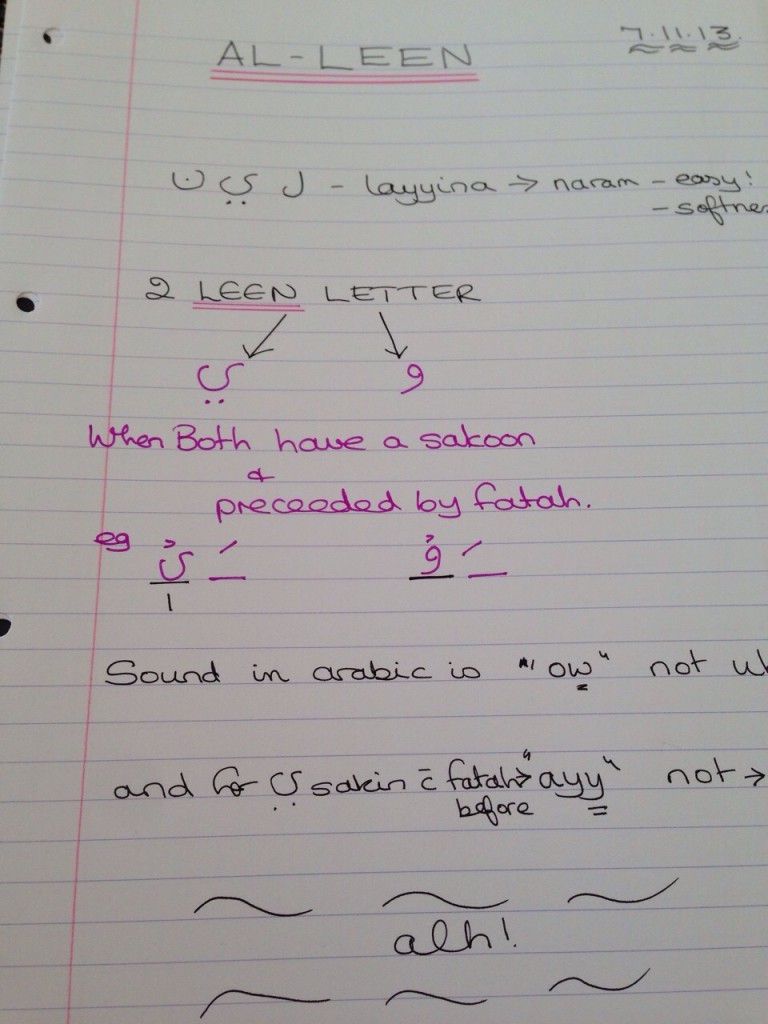 AL-LEEN
7.11.13
ل ي ن - layyina → naram - easy!
- softnes
2 LEEN LETTER
ي و
When Both have a sakoon
&
preceeded by fatah.
eg
Sound in arabic is "ow" not
and for ي sakin c̄ fatah→ "ayy" not →
before
alh!